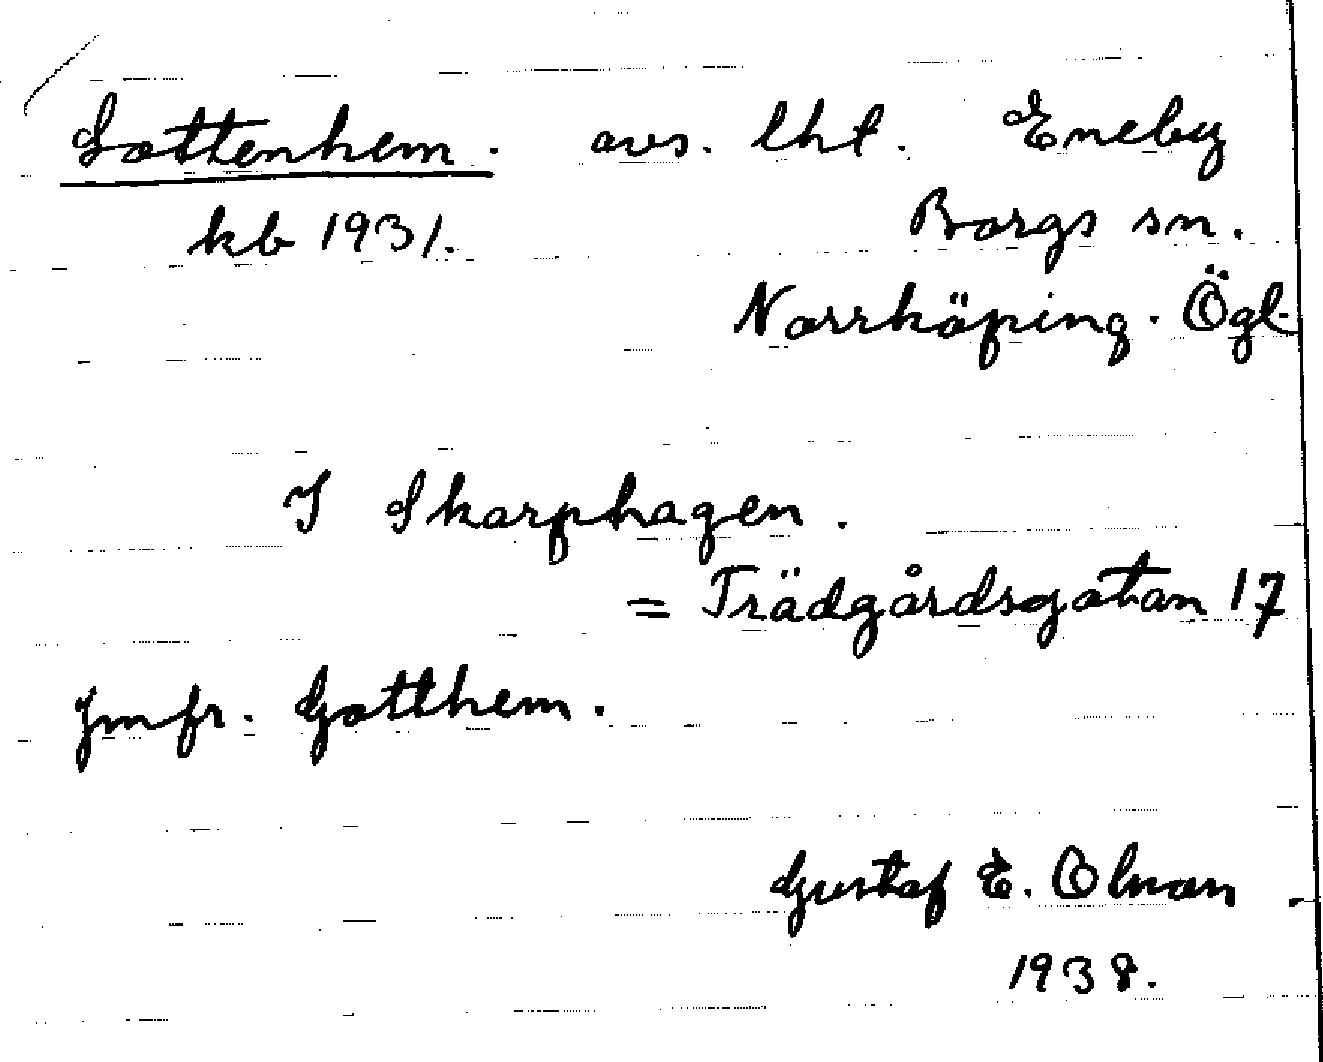 Sottenhem. avs. lht. Eneby
kb 1931. Borgs sn.
Norrköping. Ögl.
I Skarphagen.
= Trädgårdsgatan 17
Jmfr. Gotthem.
Gustaf E. Olman.
1938.